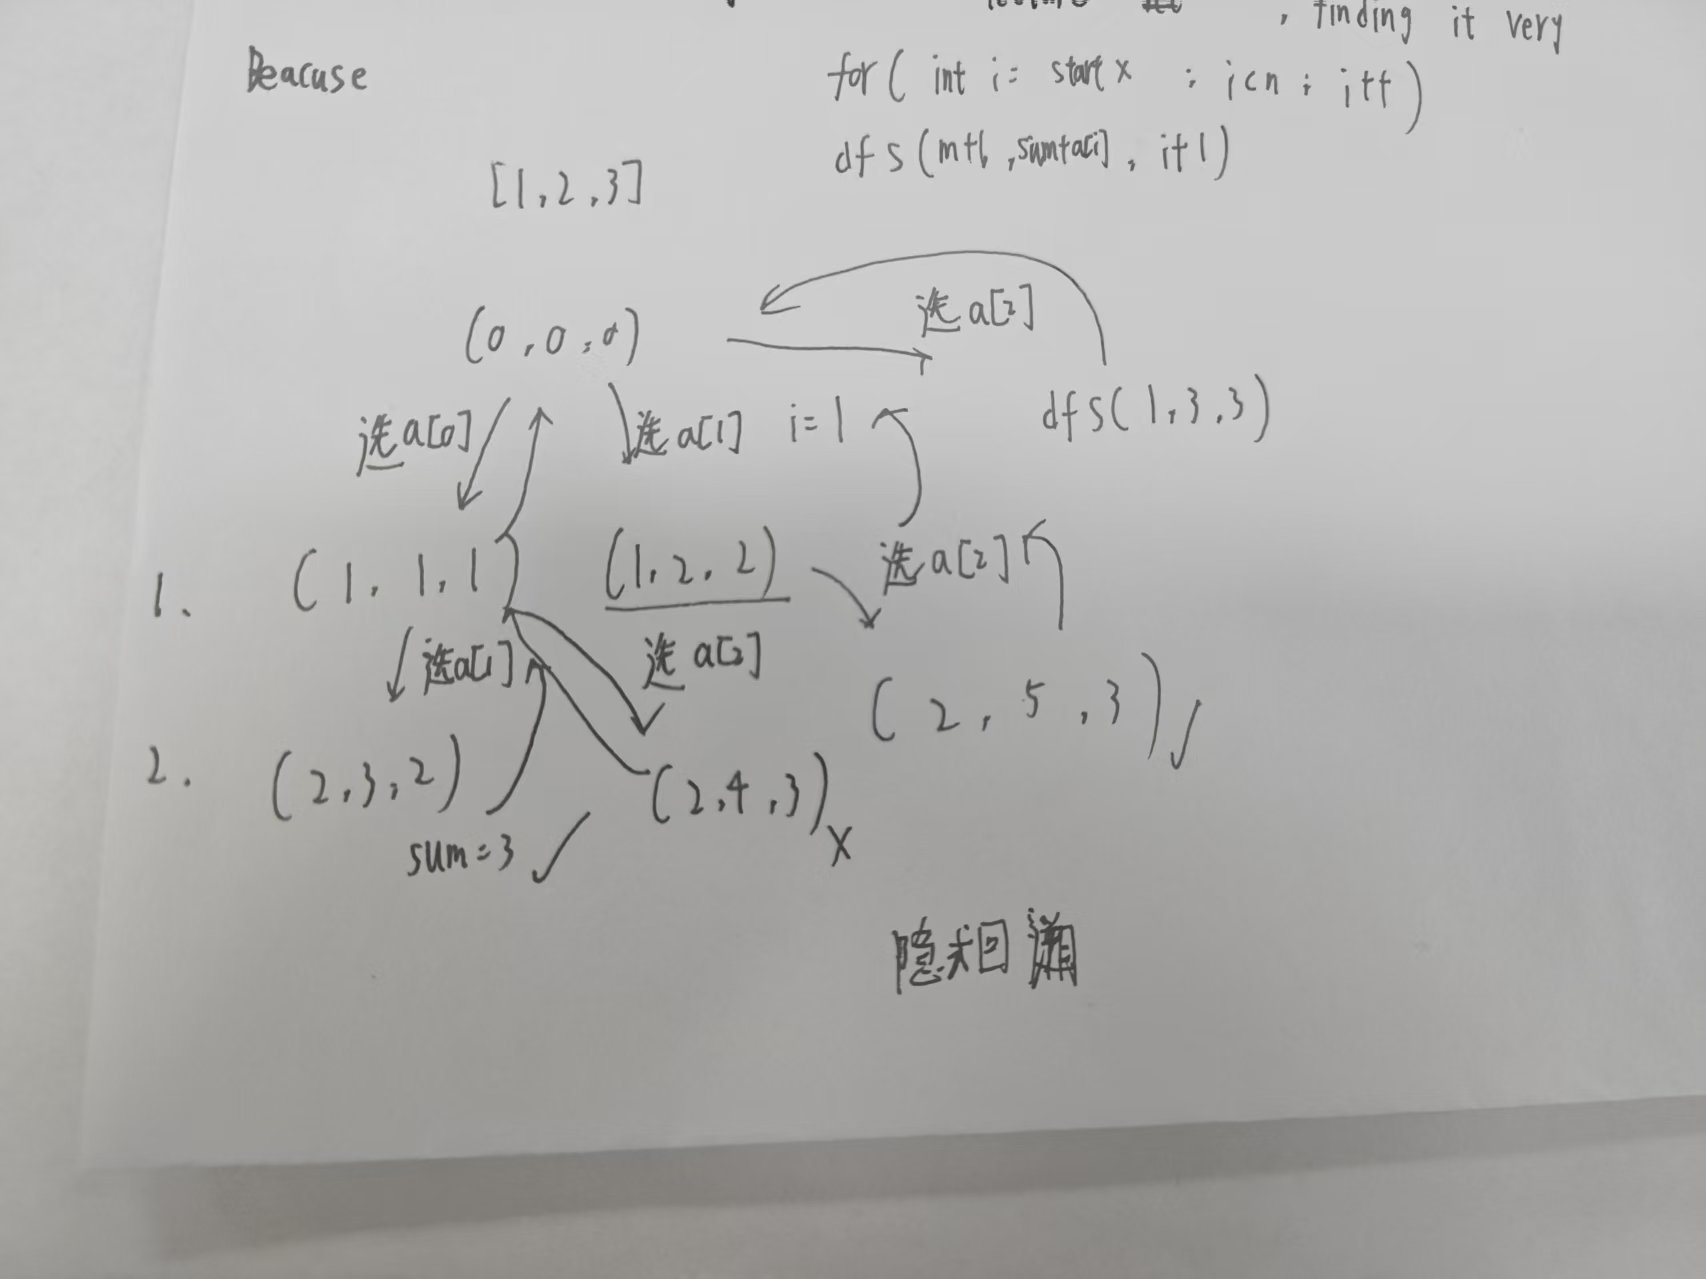 , finding it very
Beacuse
for( int i= startx ; i<n ; i++)
dfs(m+1,sum+a[i], i+1)
[1,2,3]
(0,0,0)
选a[2]
选a[0]
选a[1] i=1
dfs(1,3,3)
1. (1,1,1) (1,2,2) 选a[2]
选a[1] 选a[2]
(2,5,3)✓
2. (2,3,2) (2,4,3)x
sum=3 ✓
隐式回溯